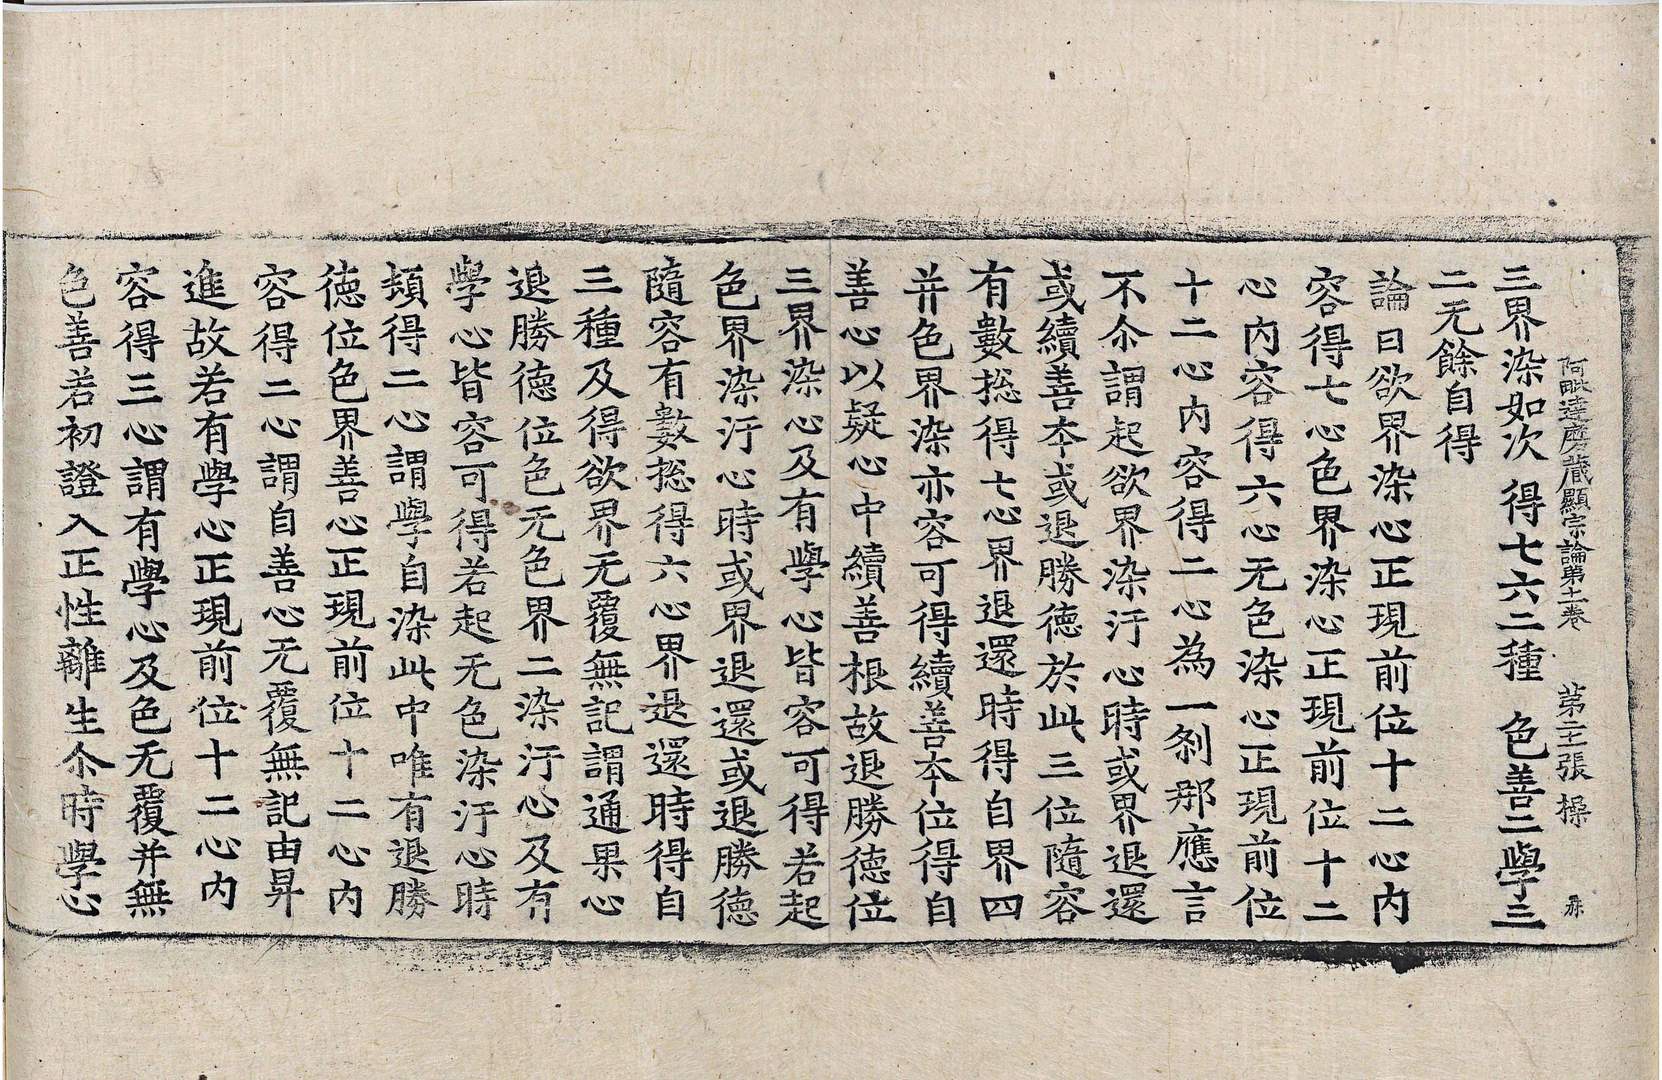 阿毗達磨藏顯宗論第十二卷　第二十張　操
三界染如次　得七六二種　色善三學三
二无餘自得
論曰欲界染心正現前位十二心內
容得七心色界染心正現前位十二
心內容得六心无色染心正現前位
十二心內容得二心為一剎那應言
不尒謂起欲界染汙心時或界退還
或續善本或退勝德於此三位隨容
有數捴得七心界退還時得自界四
并色界染亦容可得續善本位得自
善心以疑心中續善根故退勝德位
三界染心及有學心皆容可得若起
色界染汙心時或界退還或退勝德
隨容有數捴得六心界退還時得自
三種及得欲界无覆無記謂通果心
退勝德位色无色界二染汙心及有
學心皆容可得若起无色染汙心時
頓得二心謂學自染此中唯有退勝
德位色界善心正現前位十二心內
容得二心謂自善心无覆無記由昇
進故若有學心正現前位十二心內
容得三心謂有學心及色无覆并無
色善若初證入正性離生尒時學心